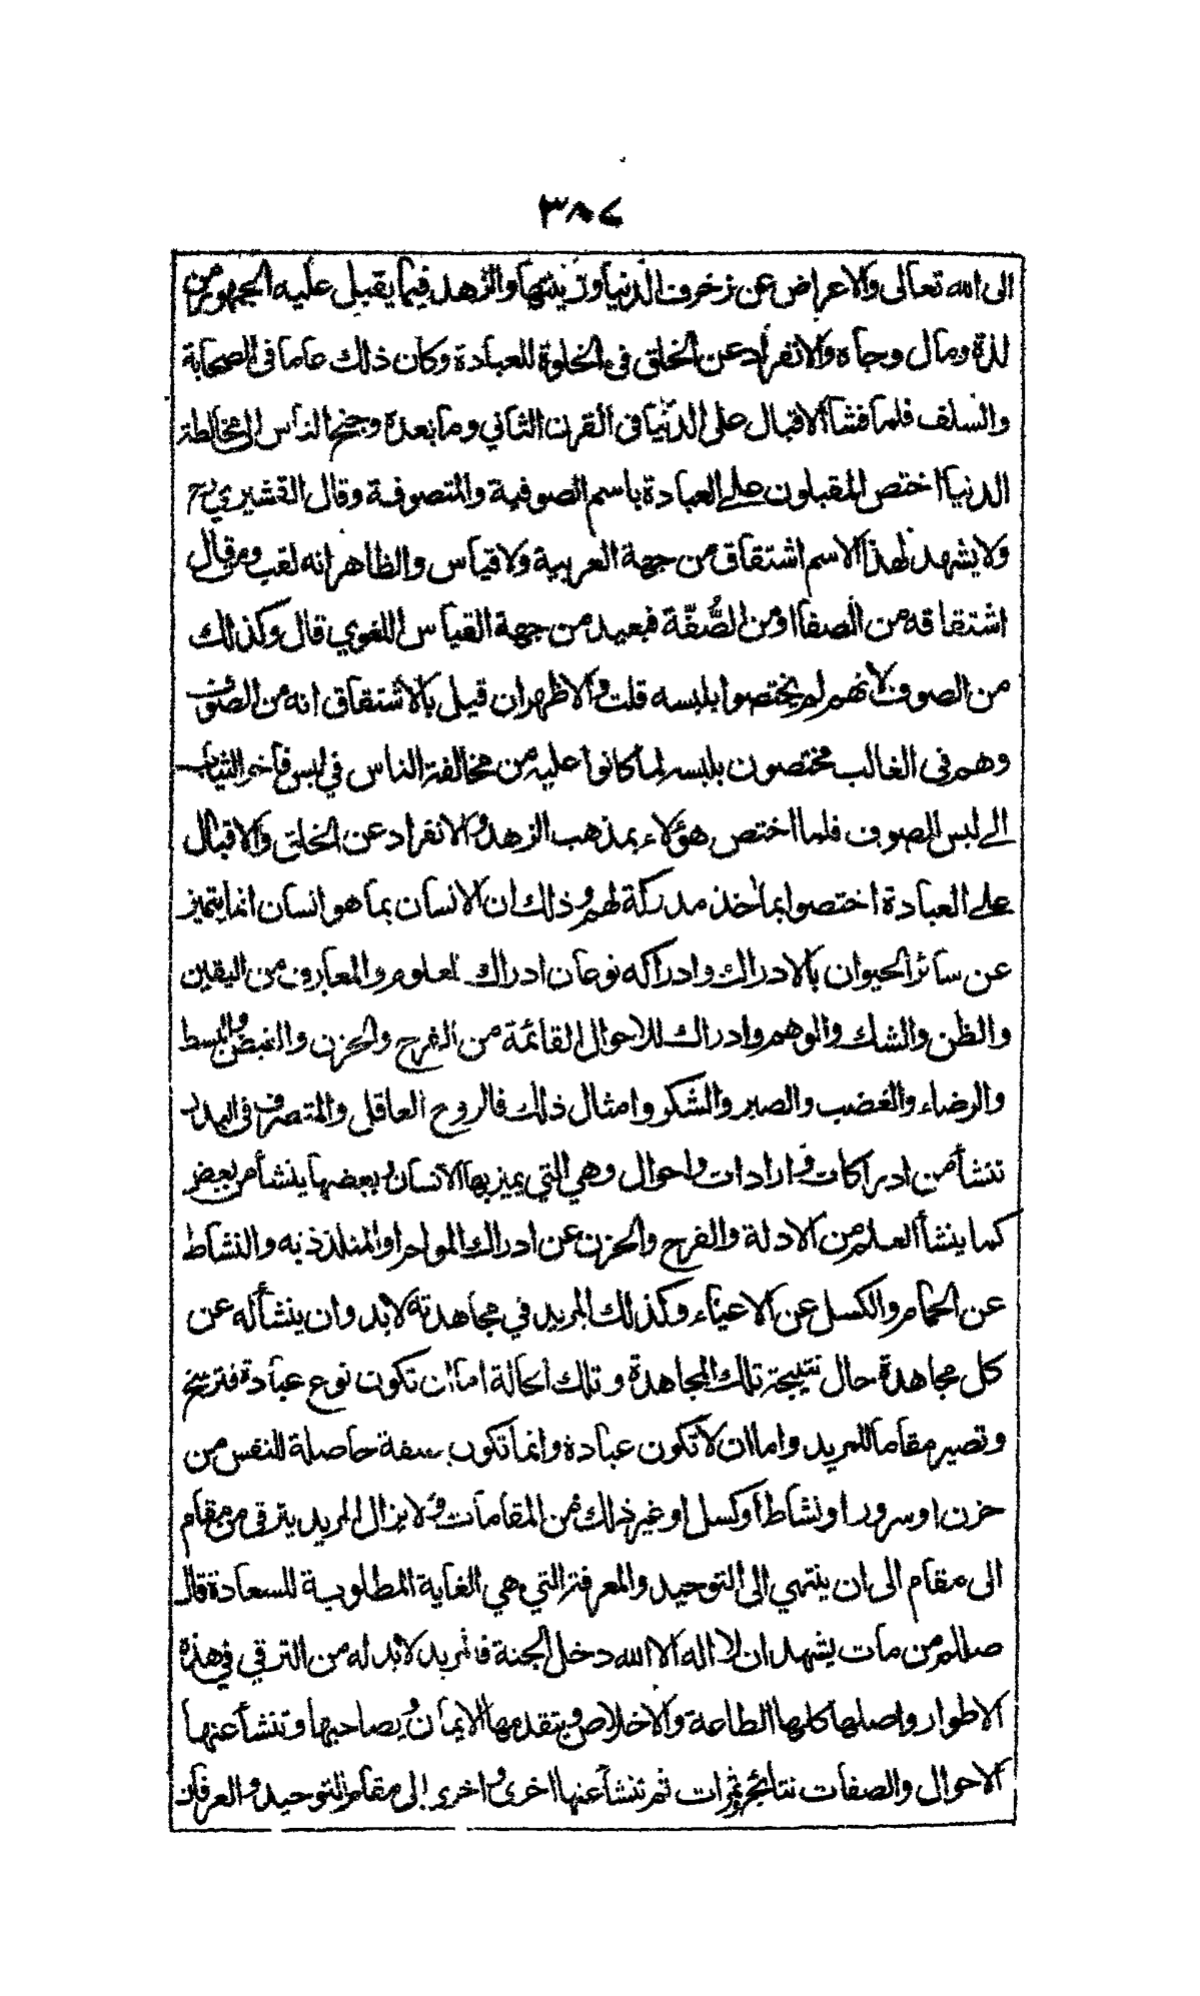 ٣٨٧
الى الله تعالى والاعراض عن زخرف الدنيا وزينتها والزهد فيما يقبل عليه الجمهور من
لذة ومال وجاه والانفراد عن الخلق في الخلوة للعبادة وكان ذلك عاما في الصحابة
والسلف فلما فشا الاقبال على الدنيا في القرن الثاني وما بعده وجنح الناس الى مخالطة
الدنيا اختص المقبلون على العبادة باسم الصوفية والمتصوفة وقال القشيري رح
ولا يشهد لهذا الاسم اشتقاق من جهة العربية ولا قياس والظاهر انه لقب ومن قال
اشتقاقه من الصفا او من الصُّفّة فبعيد من جهة القياس اللغوي قال وكذلك
من الصوف لانهم لم يختصوا بلبسه قلت والاظهر ان قيل بالاشتقاق انه من الصوف
وهم في الغالب مختصون بلبسه لما كانوا عليه من مخالفة الناس في لبس فاخر الثياب
الى لبس الصوف فلما اختص هؤلاء بمذهب الزهد والانفراد عن الخلق والاقبال
على العبادة اختصوا بمآخذ مدركة لهم وذلك ان الانسان بما هو انسان انما يتميز
عن سائر الحيوان بالادراك وادراكه نوعان ادراك لعلوم والمعارف من اليقين
والظن والشك والوهم وادراك للاحوال القائمة من الفرح والحزن والقبض والبسط
والرضاء والغضب والصبر والشكر وامثال ذلك فالروح العاقل والمتصرف في البدن
تنشأ من ادراكات وارادات واحوال وهي التي يميز بها الانسان وبعضها ينشأ من بعض
كما ينشأ العلم من الادلة والفرح والحزن عن ادراك المولم او المتلذذ به والنشاط
عن الحمام والكسل عن الاعياء وكذلك المريد في مجاهدته لابد وان ينشأ له عن
كل مجاهدة حال نتيجة تلك المجاهدة وتلك الحالة اما ان تكون نوع عبادة فترسخ
وتصير مقاما للمريد واما ان لا تكون عبادة وانما تكون صفة حاصلة للنفس من
حزن او سرور او نشاط او كسل او غير ذلك من المقامات ولا يزال المريد يترقى من مقام
الى مقام الى ان ينتهي الى التوحيد والمعرفة التي هي الغاية المطلوبة للسعادة قال
صللم من مات يشهد ان لا اله الا الله دخل الجنة فالمريد لابد له من الترقي في هذه
الاطوار واصلها كلها الطاعة والاخلاص ويتقدمها الايمان ويصاحبها وتنشأ عنها
الاحوال والصفات نتائج وثمرات ثم تنشأ عنها اخرى واخرى الى مقام التوحيد والعرفان